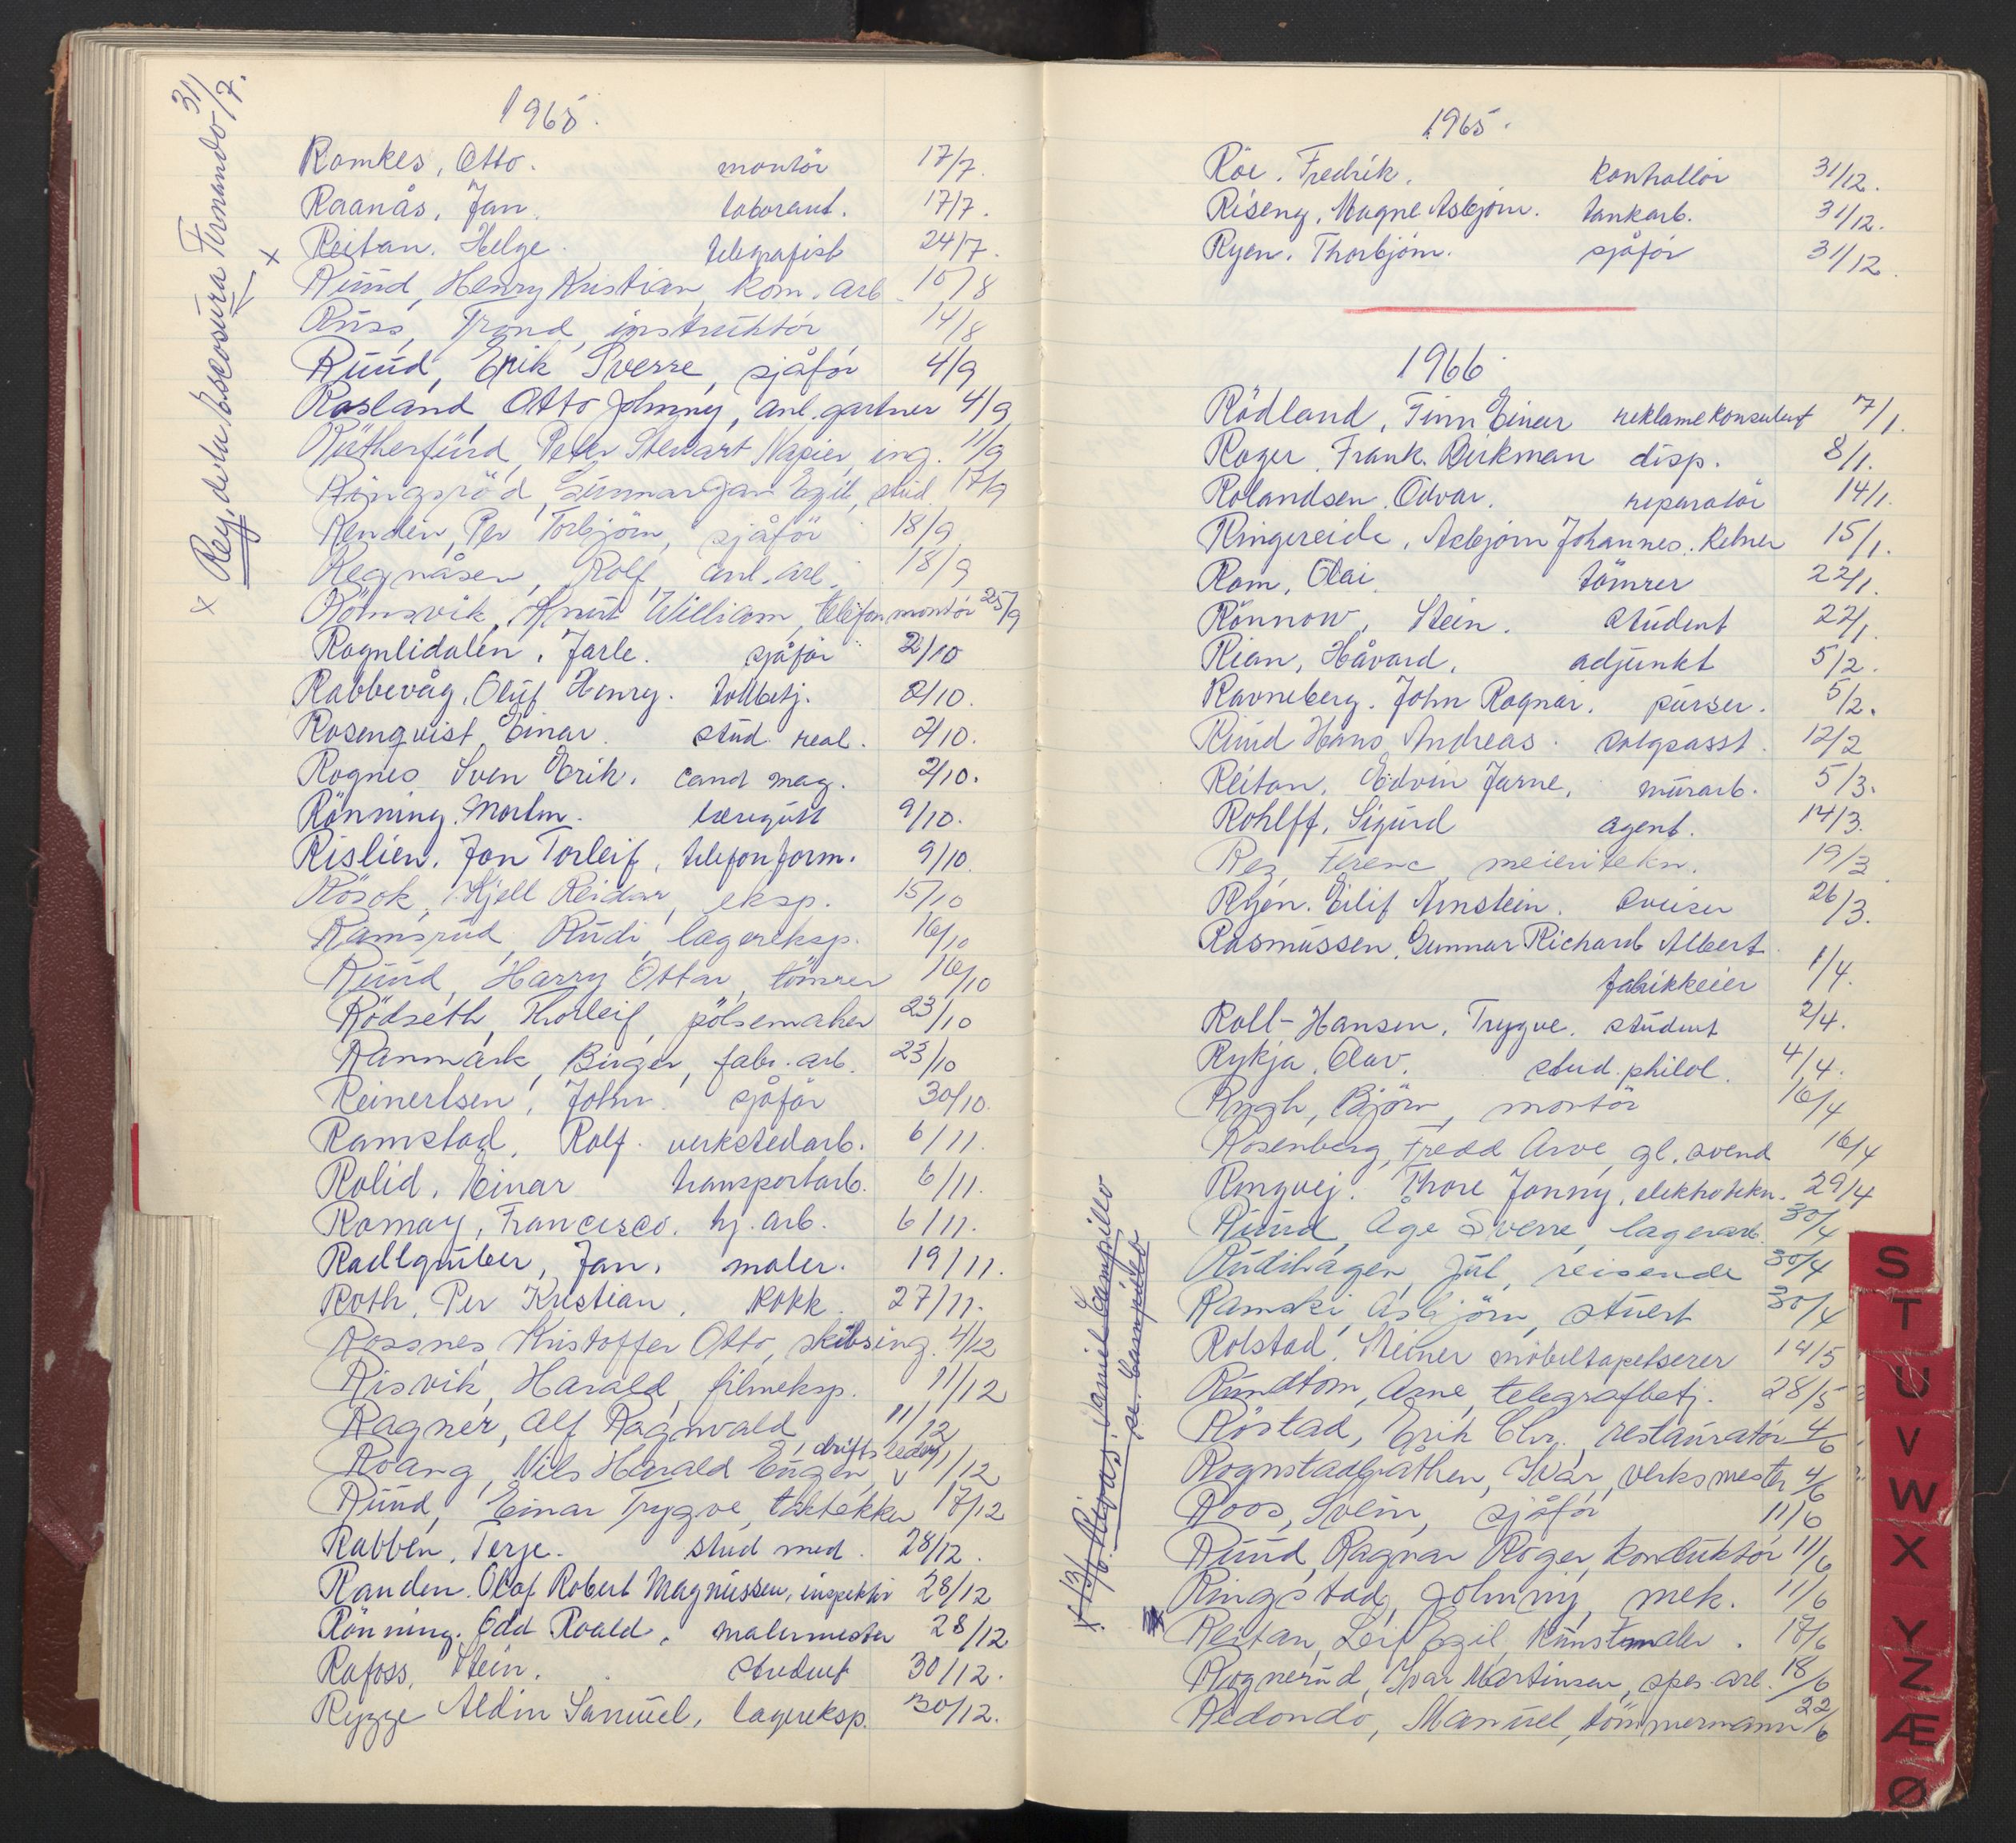 1965.
Romkes, Otto. montör 17/7.
Raanås, Jan. laborant. 17/7.
x Reitan. Helge. telegrafist 24/7.
Ruud, Henry Kristian, kom. arb. 10/8
Russ, Trond, instruktör 14/8
Ruud, Erik Sverre, sjåför 4/9
Rosland, Otto Johnny, anl. gartner 4/9
Rutherfurd, Peter Stewart Napier, ing. 11/9
Ringsröd, Gunnar Jan Egil, stud. 17/9
Renden, Per Torbjörn, sjåför 18/9
Regnåsen, Rolf, anl. arb. 18/9
Römsvik, Knut William, telefonmontör 25/9
Rognlidalen, Jarle. sjåför 2/10
Rabbevåg, Oluf Henry. tollbetj. 2/10.
Rosenqvist, Einar. stud. real. 2/10.
Rognes Sven Erik. cand mag. 2/10.
Rönning, Morten. læregutt 9/10.
Rislien, Jon Torleif, telefonform. 9/10.
Rösok, Kjell Reidar, eksp. 15/10
Ramsrud, Rudi, lagereksp. 16/10
Ruud, Harry Ottar, tömrer 16/10
Rödseth, Thorleif, pölsemaker 23/10
Ranmark, Birger, fabr. arb. 23/10
Reinertsen, John. sjåför 30/10.
Ramstad, Rolf. verkstedarb. 6/11.
Rolid, Einar transportarb. 6/11.
Romay, Francisco. hj. arb. 6/11.
Radlgruber, Jan. maler. 19/11.
Roth, Per Kristian. kokk. 27/11.
Rossnes Kristoffer Otto, skibsing. 4/12
Risvik, Harald, filmeksp. 11/12
Ragner, Alf Ragnvald 11/12
Roang, Nils Harald Eugen, 11/12
Ruud, Einar Trygve, taktekker 17/12
Rabben, Terje. stud med. 28/12.
Randen. Olaf Robert Magnussen, inspektör 28/12
Rönning. Odd Roald. malermester 28/12
Rafoss, Stein. student 30/12.
Rygge Aldin Samuel, lagereksp. 30/12.
x Rey, de la Escosura Fernando 31/7.
1965.
Röe. Fredrik. kontrollör 31/12.
Riseng, Magne Asbjörn. tankarb. 31/12.
Ryen, Thorbjörn. sjåför 31/12.
1966.
Rödland, Finn Einar reklamekonsulent 7/1.
Roger, Frank Birkman disp. 8/1.
Rolandsen, Odvar. reparatör 14/1.
Ringereide, Asbjörn Johannes. Kelner 15/1.
Rom, Olai. tömrer 22/1.
Rönnow, Stein. student 22/1.
Rian, Håvard, adjunkt 5/2.
Ravneberg. John Ragnar. purser. 5/2.
Ruud Hans Andreas. salgsasst. 12/2
Reitan, Edvin Jarne, murarb. 5/3.
Rohlff, Sigurd agent. 14/3.
Rez, Ferenc, meieritekn. 19/3
Ryen. Eilif Arnstein. sveiser 26/3.
Rasmussen, Gunnar Richard Albert
fabrikkeier 1/4.
Roll-Hansen, Trygve. student 2/4.
Rykja, Olav. stud. philol. 4/4.
Rygh, Björn, montör 16/4
Rosenberg, Fredd Arve, gl. svend 16/4
Ringvej. Thore Jonny, elektrotekn. 29/4
Ruud, Åge Sverre, lagerarb. 30/4
Rudihagen, Jul, reisende 30/4
Ramski, Asbjörn, stuert 30/4
Rolstad, Steiner möbeltapetserer 14/5
Rundtom, Arne, telegrafbetj. 28/5
Röstad, Erik Chr., restauratör 4/6
Rognstadbråthen, Ivar, verksmester 4/6
Roos, Svein, sjåför 11/6
Ruud, Ragnar Roger, konduktör 11/6
Ringstad, Johnny, mek. 11/6
Reitan, Leif Egil, Kunstmaler. 17/6
Rognerud, Ivar Martinsen, spes. arb. 18/6
Redondo, Manuel, tömmermann 22/6
x 13/6. Rivas, Daniel Campillo
se. Campillo
S
T
U
V
W
X
Y
Z
Æ
Ø